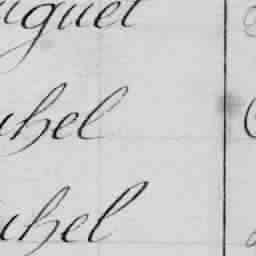 uguet
uhel
uhel